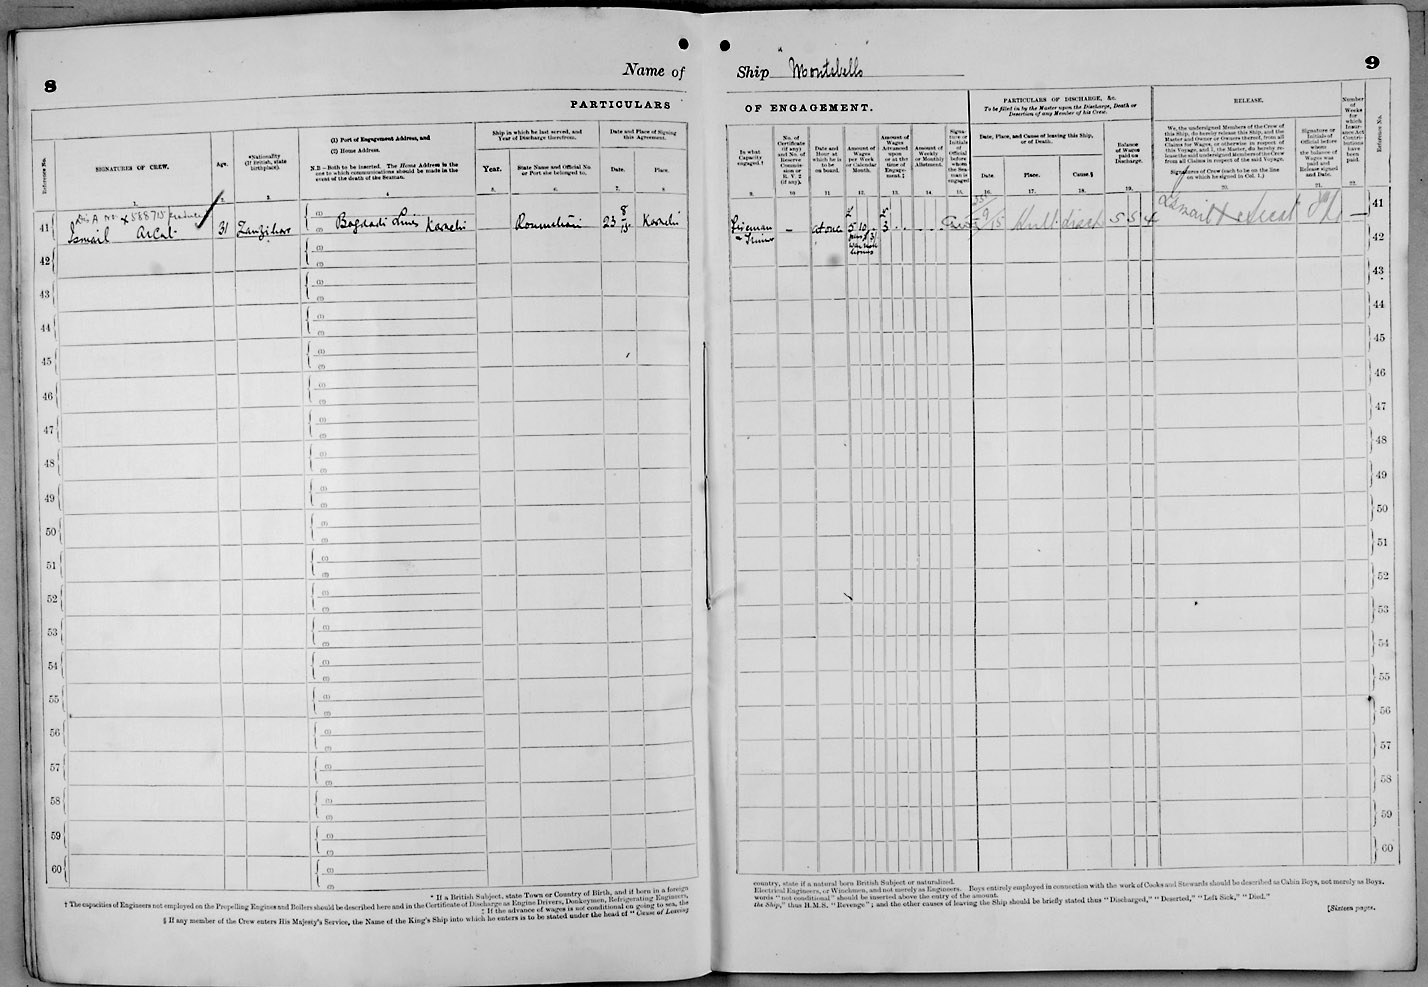 8
Name of
PARTICULARS
Reference No.
SIGNATURES OF CREW.
Age.
*Nationality
(If British, state
birthplace).
(1) Port of Engagement Address, and
(2) Home Address.
N.B.—Both to be inserted. The Home Address is the
one to which communications should be made in the
event of the death of the Seaman.
Ship in which he last served, and
Year of Discharge therefrom.
Year.
State Name and Official No
or Port she belonged to.
Date and Place of Signing
this Agreement.
Date.
Place.
1.
2.
3.
4
5.
6.
7.
8.
Dis A No 588715
41
Ismail Arcat
31
Zanzibar
(1)
(2)
Bagdadi Lines Karachi
Roumelian
23 8 15
Karachi
42
43
44
45
46
47
48
49
50
51
52
53
54
55
56
57
58
59
60
* If a British Subject, state Town or Country of Birth, and if born in a foreign
† The capacities of Engineers not employed on the Propelling Engines and Boilers should be described here and in the Certificate of Discharge as Engine Drivers, Donkeymen, Refrigerating Engineers,
‡ If the advance of wages is not conditional on going to sea, the
§ If any member of the Crew enters His Majesty's Service, the Name of the King's Ship into which he enters is to be stated under the head of "Cause of Leaving
Ship "Montebello"
9
OF ENGAGEMENT.
PARTICULARS OF DISCHARGE, &c.
To be filled in by the Master upon the Discharge, Death or
Desertion of any Member of his Crew.
RELEASE.
Number
of
Weeks
for
which
Insur-
ance Act
Contri-
butions
have
been
paid.
Reference No.
In what
Capacity
engaged.†
No. of
Certificate
(if any)
and No. of
Reserve
Commis-
sion or
R. V. 2
(if any).
Date and
Hour at
which he is
to be
on board.
Amount of
Wages
per Week
or Calendar
Month.
Amount of
Wages
Advanced
upon
or at the
time of
Engage-
ment.‡
Amount of
Weekly
or Monthly
Allotment.
Signa-
ture or
Initials
of
Official
before
whom
the Sea-
man is
engaged
Date, Place, and Cause of leaving this Ship,
or of Death.
Date
Place.
Cause.§
Balance
of Wages
paid on
Discharge.
We, the undersigned Members of the Crew of
this Ship, do hereby release this Ship, and the
Master and Owner or Owners thereof, from all
Claims for Wages, or otherwise in respect of
this Voyage, and I, the Master, do hereby re-
lease the said undersigned Members of the Crew
from all Claims in respect of the said Voyage.
Signatures of Crew (each to be on the line
on which he signed in Col. 1.)
Signature or
Initials of
Official before
whom
the balance of
Wages was
paid and
Release signed
and Date.
9.
10
11
12.
13.
14.
15.
16.
17.
18.
19.
20.
21.
22.
Fireman
& Trimmer
—
at once
£
5 10 -
£
3 . .
. . .
9/15
Hull
disch
5 5 4
Ismail Arcat
—
41
42
43
44
45
46
47
48
49
50
51
52
53
54
55
56
57
58
59
60
country, state if a natural born British Subject or naturalized.
Electrical Engineers, or Winchmen, and not merely as Engineers. Boys entirely employed in connection with the work of Cooks and Stewards should be described as Cabin Boys, not merely as Boys.
words "not conditional" should be inserted above the entry of the amount.
the Ship," thus H.M.S. "Revenge"; and the other causes of leaving the Ship should be briefly stated thus "Discharged," "Deserted," "Left Sick," "Died."
[Sixteen pages.